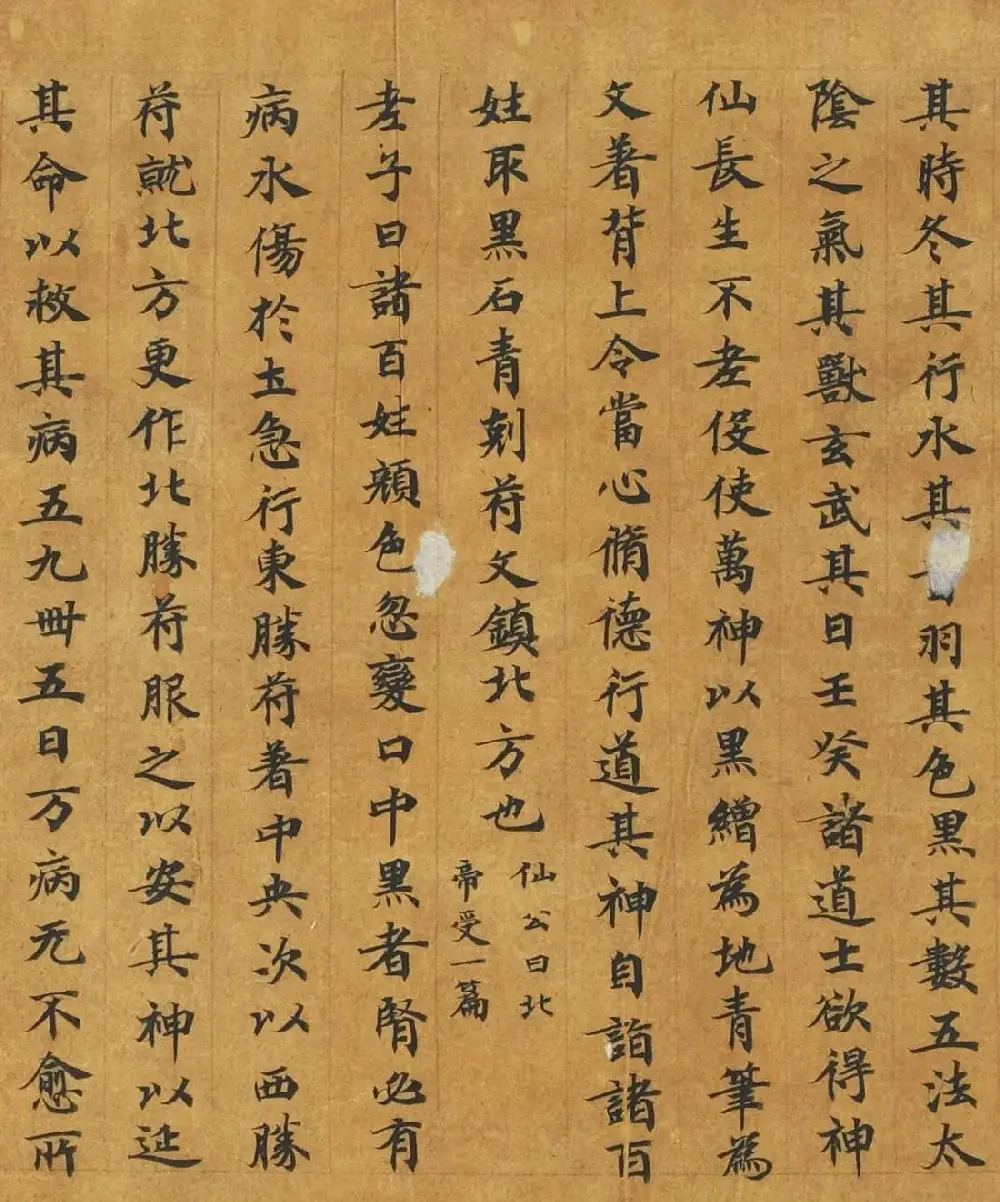 其時冬其行水其羽其色黑其數五法太
陰之氣其獸玄武其日壬癸諸道士欲得神
仙長生不老役使萬神以黑繒為地青筆為
文著背上令當心脩德行道其神自詣諸百
姓取黑石青刻苻文鎮北方也
仙公曰北
帝受一篇
老子曰諸百姓顏色忽變口中黑者腎必有
病水傷於土急行東勝苻著中央次以西勝
苻就北方更作北勝苻服之以安其神以延
其命以救其病五九卌五日万病无不愈所